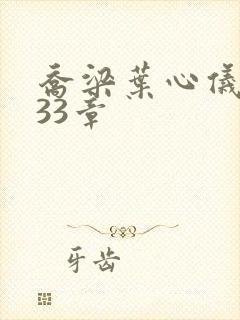 乔梁葉心儀
33章
牙齿